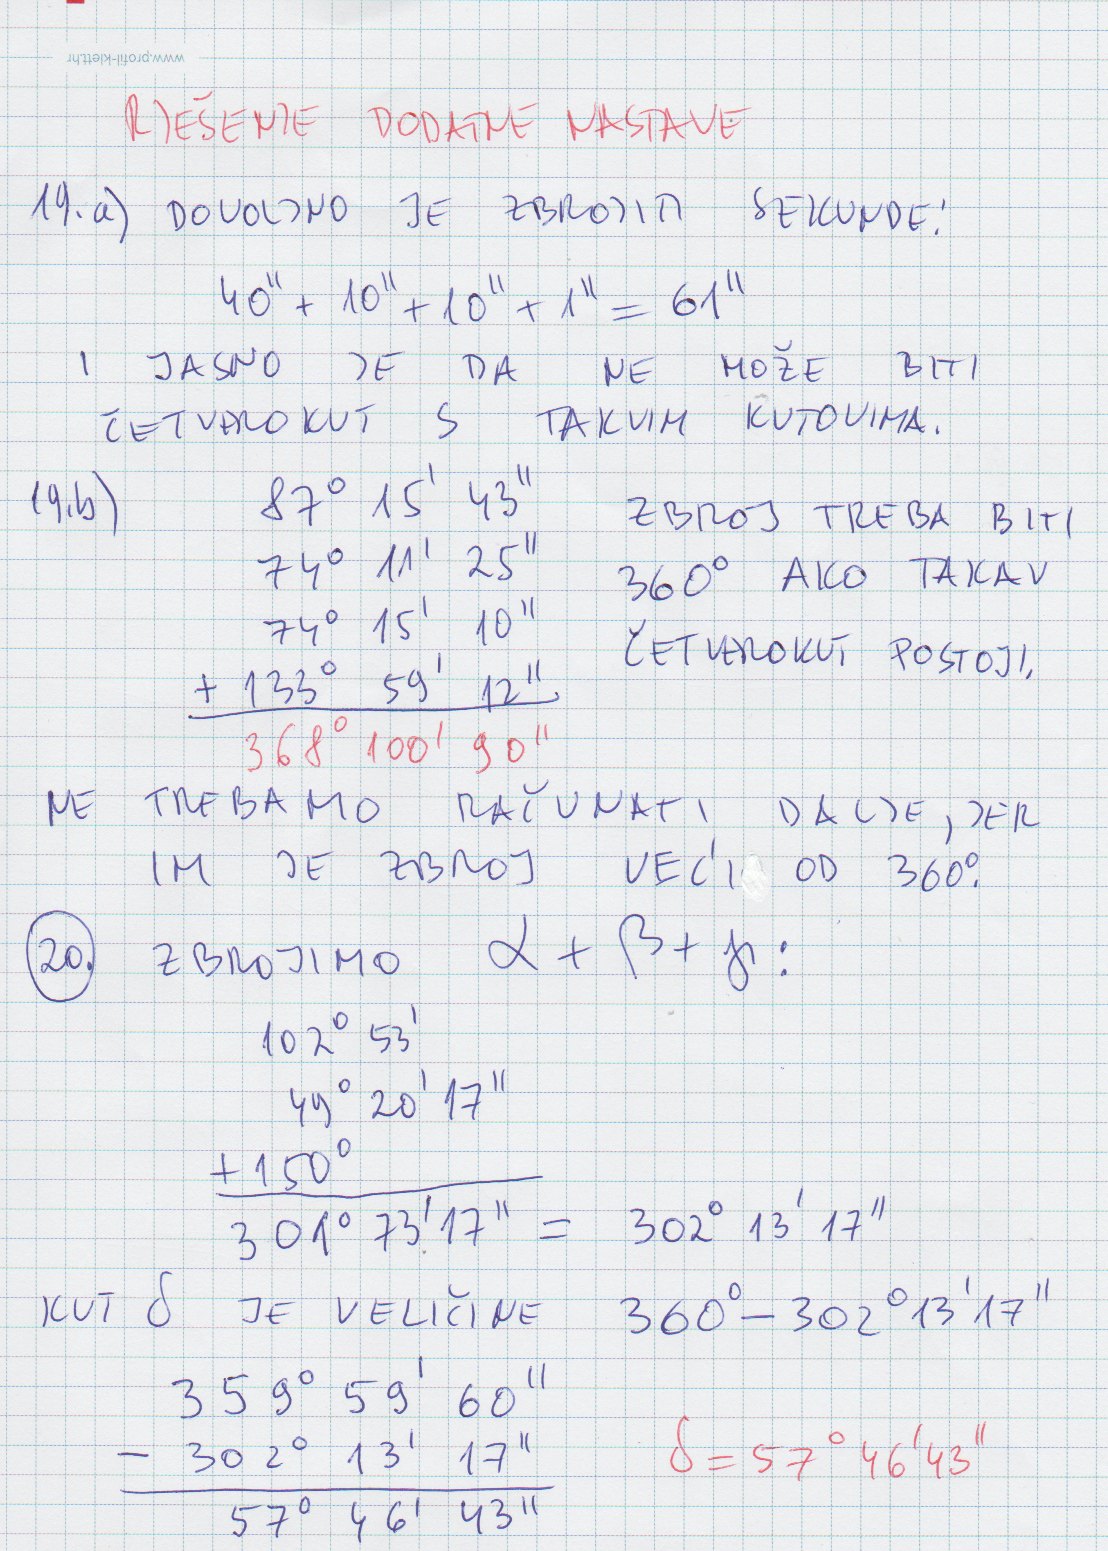 www.profil-klett.hr
RJEŠENJE DODATNE NASTAVE
19.a) DOVOLJNO JE ZBROJITI SEKUNDE:
40" + 10" + 10" + 1" = 61"
I JASNO JE DA NE MOŽE BITI
ČETVEROKUT S TAKVIM KUTOVIMA.
19.b) 87° 15' 43"
74° 11' 25"
74° 15' 10"
+ 133° 59' 12"
368° 100' 90"
ZBROJ TREBA BITI
360° AKO TAKAV
ČETVEROKUT POSTOJI.
NE TREBAMO RAČUNATI DALJE, JER
IM JE ZBROJ VEĆI OD 360°.
20. ZBROJIMO α + β + γ:
102° 53'
49° 20' 17"
+ 150°
301° 73' 17" = 302° 13' 17"
KUT δ JE VELIČINE 360° - 302° 13' 17"
359° 59' 60"
- 302° 13' 17"
57° 46' 43"
δ = 57° 46' 43"